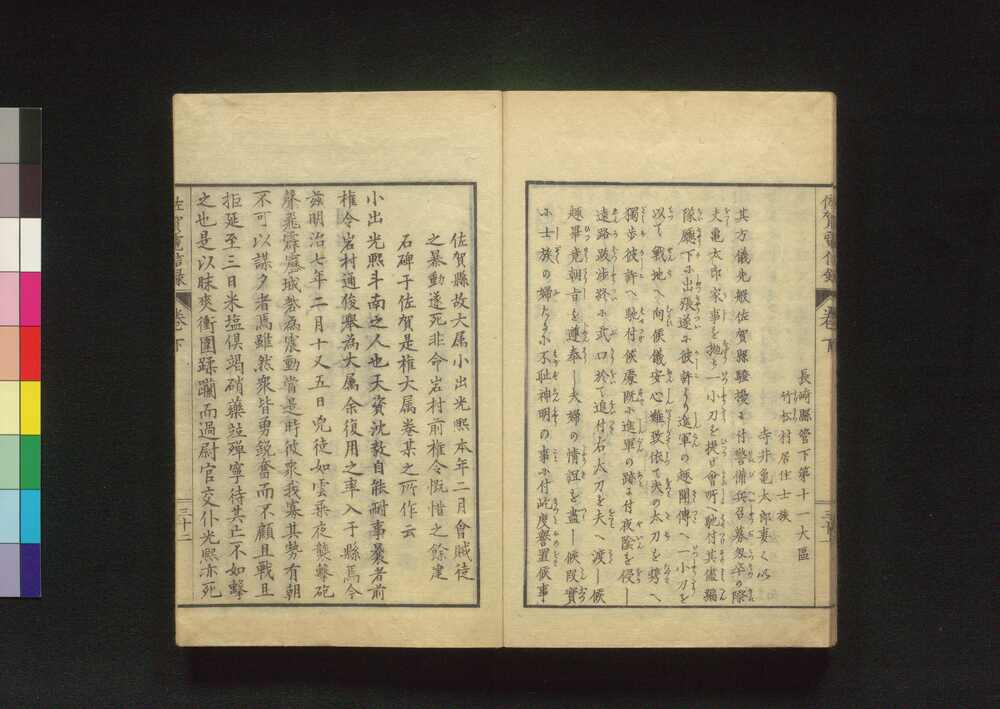 長崎縣管下第十一大區
竹松村居住士族
寺井亀太郎妻くめ
其方儀先般佐賀縣騒擾ニ付警備兵召募忽卒の際
夫亀太郎家事を抛ち一小刀を提け會所へ馳付其儘編
隊廳下に出張遂に彼許より進軍の趣聞傳へ一小刀を
以て戰地へ向候儀安心難致依て夫の太刀を携へ
獨歩彼許へ馳付候處既に進軍の跡に付夜陰を侵し
遠路跋渉終に武口於て追付右太刀を夫へ渡し候
趣畢竟朝旨を遵奉し夫婦の情誼を盡し候段實
に士族の婦たるに不耻神明の事に付此度褒置候事
佐賀電信録
卷下
佐賀縣故大属小出光熙本年二月會賊徒
之暴動遂死非命岩村前権令慨惜之餘建
石碑于佐賀是権大属巻某之所作云
小出光熙斗南之人也天資沈毅自能耐事曩者前
権令岩村通俊舉為大属余復用之率入于縣焉今
茲明治七年二月十又五日兇徒如雲乗夜襲撃砲
聲飛霹靂城壘為震動當是時彼衆我寡其勢有朝
不可以謀夕者焉雖然衆皆勇鋭奮而不顧且戰且
拒延至三日米塩倶竭硝藥竝殫寧待其亡不如撃
之也是以昧爽衝圍蹂躙而過尉官交仆光熙亦死
佐賀電信録
卷下
三十二